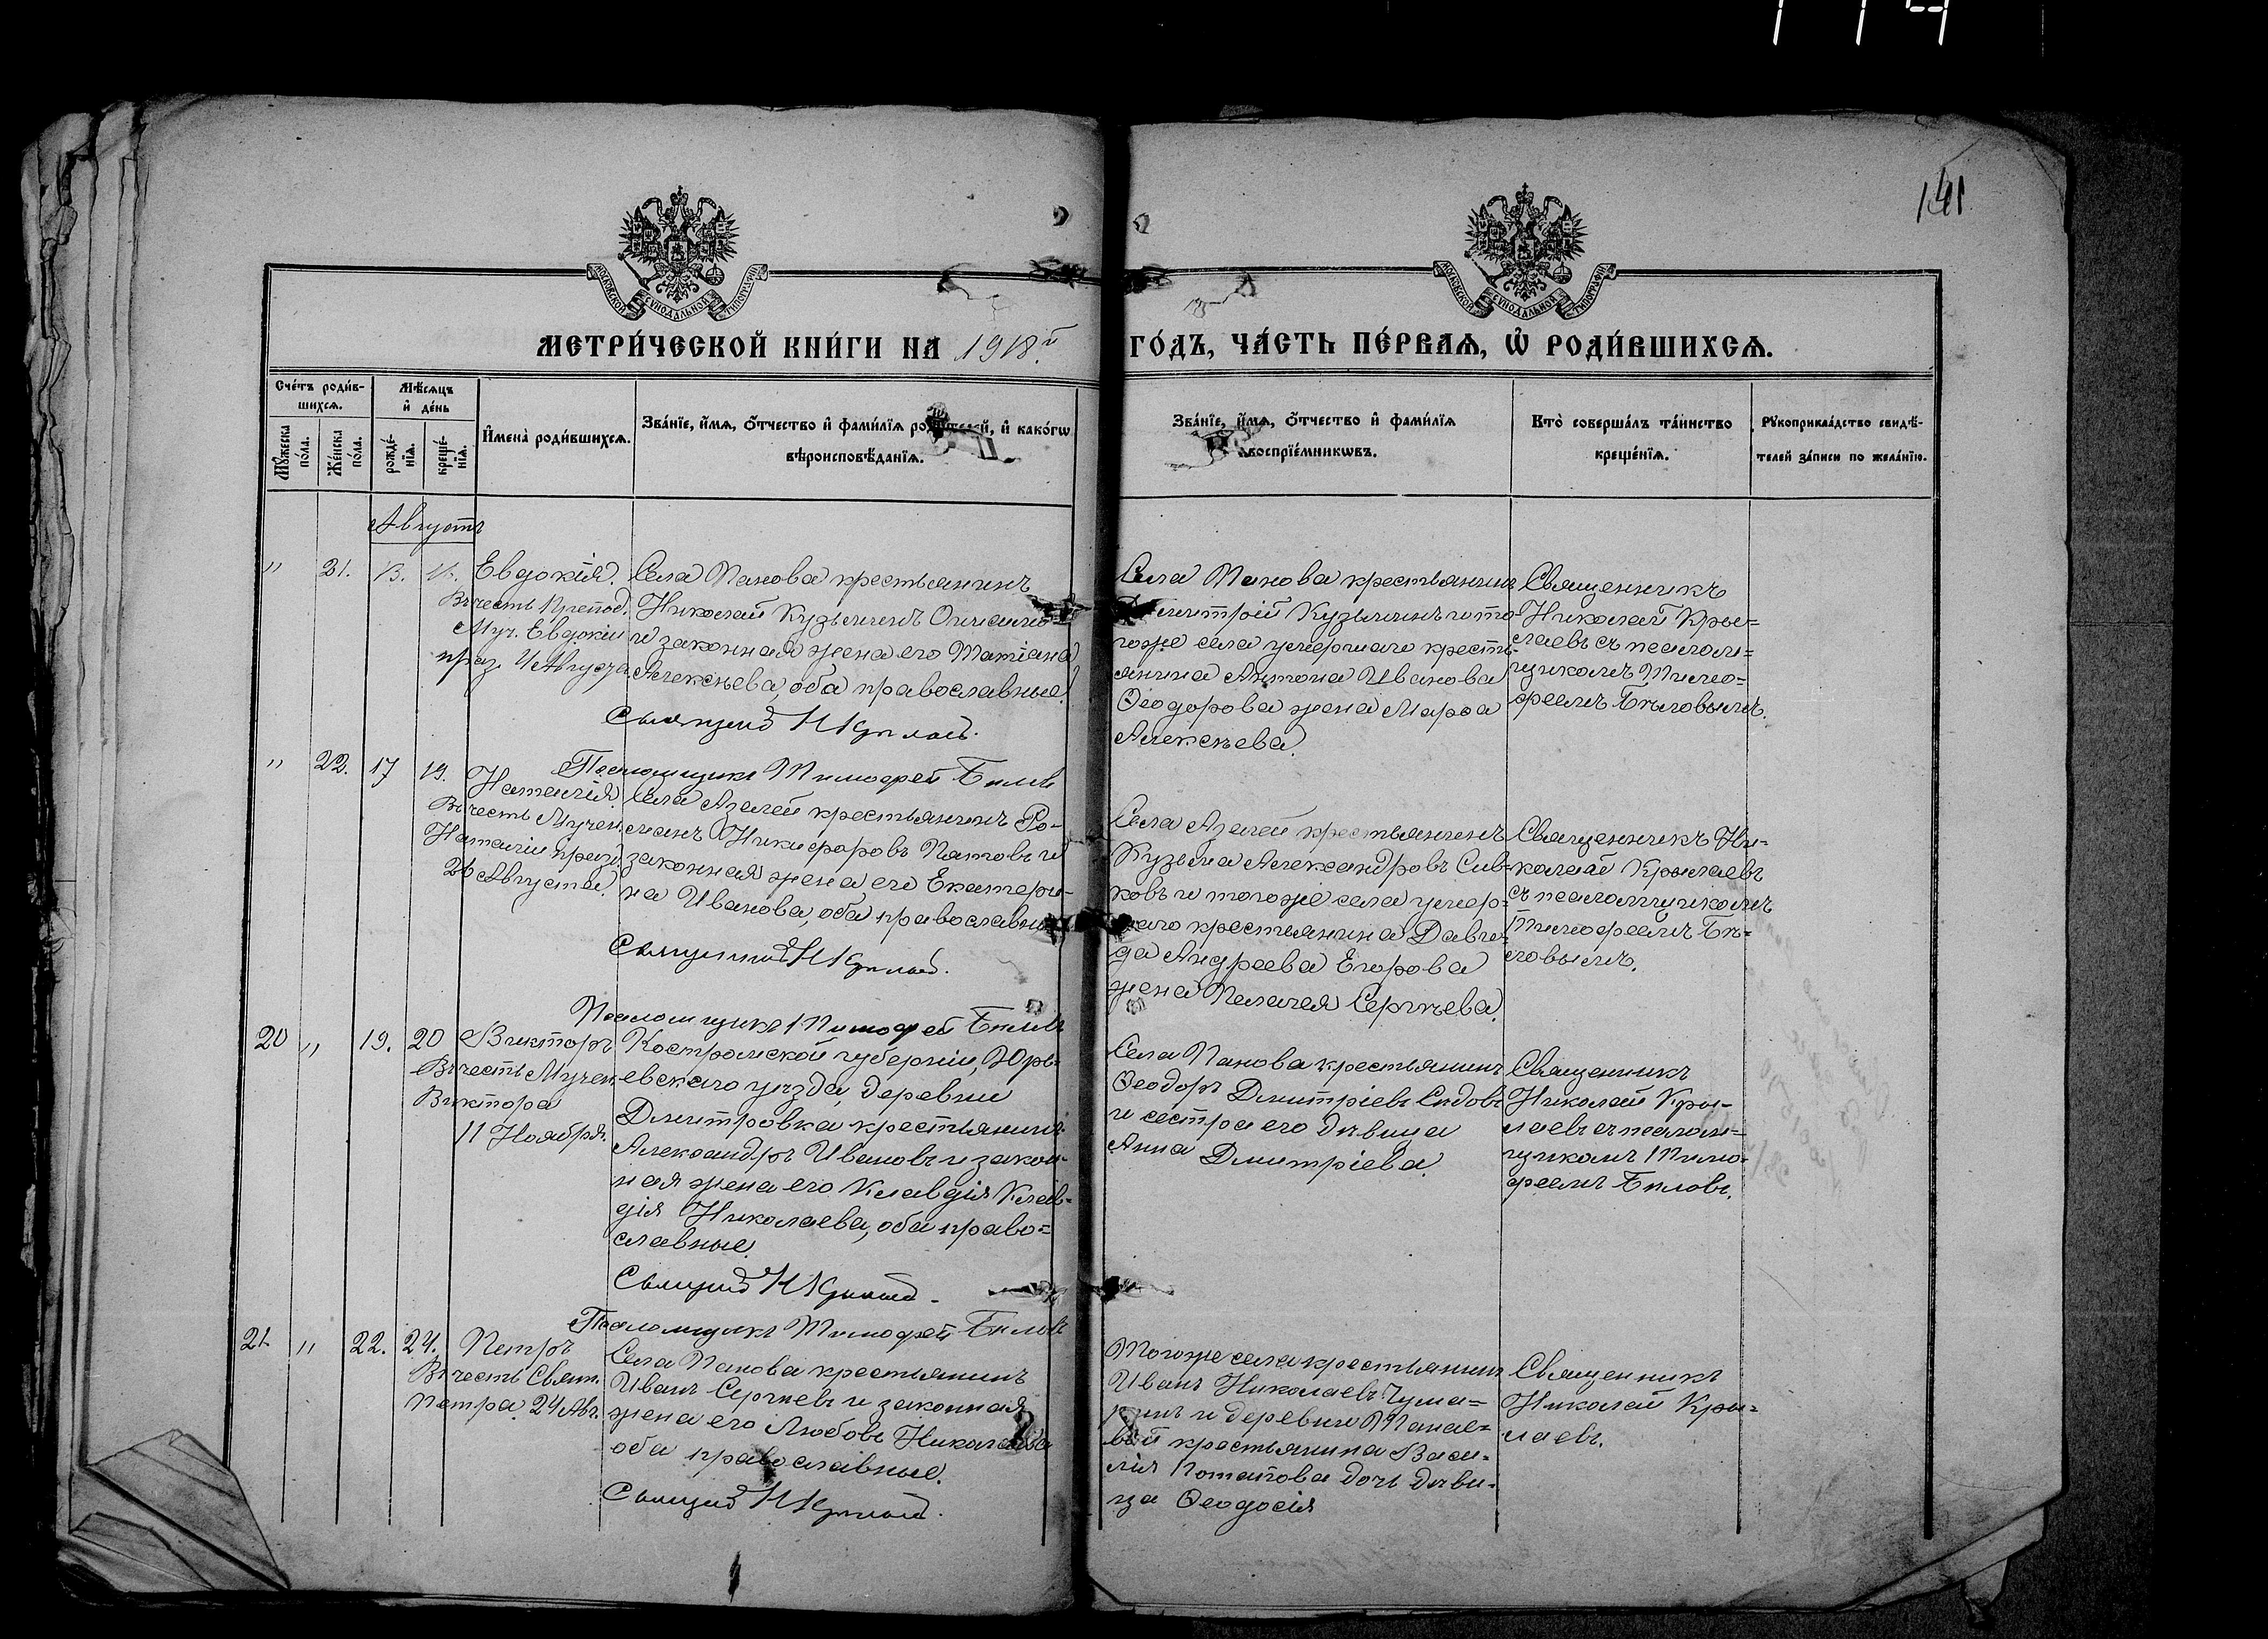 141
МОСКОВСКОЙ СѴНОДАЛЬНОЙ ТИПОГРАФІИ
МОСКОВСКОЙ СѴНОДАЛЬНОЙ ТИПОГРАФІИ
МЕТРИ́ЧЕСКОЙ КНИ́ГИ НА 1918й ГО́ДЪ, ЧА́СТЬ ПЕ́РВАѦ, Ѡ҆ РОДИ́ВШИХСѦ.
Сче́тъ роди́в-
шихсѧ.
Мꙋ́жеска
по́ла.
Же́нска
по́ла.
Мѣ́сѧцъ
и҆ де́нь
рожде́-
нїѧ.
креще́-
нїѧ.
И҆мена̀ роди́вшихсѧ.
Зва́нїе, и҆́мѧ, ѻ҆́тчество и҆ фами́лїѧ роди́телей, и҆ како́гѡ
вѣроисповѣ́данїѧ.
Зва́нїе, и҆́мѧ, ѻ҆́тчество и҆ фами́лїѧ
воспрїе́мникѡвъ.
Кто̀ соверша́лъ та́инство
креще́нїѧ.
Рꙋкоприкла́дство свидѣ́-
телей за́писи по жела́нїю.
Августъ
" 21. 13.
Евдокія.
Въ честь Препод.
Муч. Евдокіи
праз. 4 Августа
Села Панова крестьянинъ
Николай Кузьминъ
и законная жена его Татіана
Алексѣева, оба православные.
Священ Н Крылаевъ.
Псаломщикъ Тимофей Бѣловъ
Села Панова крестьянинъ
Димитрій Кузьминъ и то-
гоже села умершаго кресть-
янина Антона Иванова
Ѳеодорова жена Марѳа
Алексѣева.
Священникъ
Николай Кры=
лаевъ съ псалом=
щикомъ Тимо=
феемъ Бѣловымъ.
" 22. 17 19.
Наталія.
Въ честь Мучен.
Наталіи празд.
26 Августа.
Села Азалей крестьянинъ Ро-
манъ Никифоровъ Пятовъ и
законная жена его Екатери-
на Иванова, оба православные
Священникъ Н Крылаевъ.
Псаломщикъ Тимофей Бѣловъ
Села Азалей крестьянинъ
Кузьма Александровъ Сив-
ковъ и тогоже села умер-
шаго крестьянина Дави-
да Андреева Егорова
жена Пелагея Сергѣева.
Священникъ Ни-
колай Крылаевъ
съ псаломщикомъ
Тимофеемъ Бѣ-
ловымъ.
20 " 19. 20
Викторъ
Въ честь Мучен.
Виктора
11 Ноября.
Костромской губерніи, Юрь-
евскаго уѣзда, деревни
Дмитровка крестьянинъ
Александръ Ивановъ и закон-
ная жена его Клавдія Клав-
дія Николаева, оба право=
славные.
Священ Н Крылаевъ.
Псаломщикъ Тимофей Бѣловъ
Села Панова крестьянинъ
Ѳеодоръ Дмитріевъ Сѣдовъ
и сестра его дѣвица
Анна Дмитріева.
Священникъ
Николай Кры-
лаевъ съ псалом=
щикомъ Тимо-
феемъ Бѣловъ.
21. " 22. 24.
Петръ
Въ честь Свят.
Петра. 24 Авг.
Села Панова крестьянинъ
Иванъ Сергѣевъ и законная
жена его Любовь Николаева
оба православные.
Священ Н Крылаевъ.
Тогоже села крестьянинъ
Иванъ Николаевъ Чума=
ринъ и деревни Панае=
вой крестьянина Васи-
лія Потапова дочь дѣви-
ца Ѳеодосія
Священникъ
Николай Кры=
лаевъ.